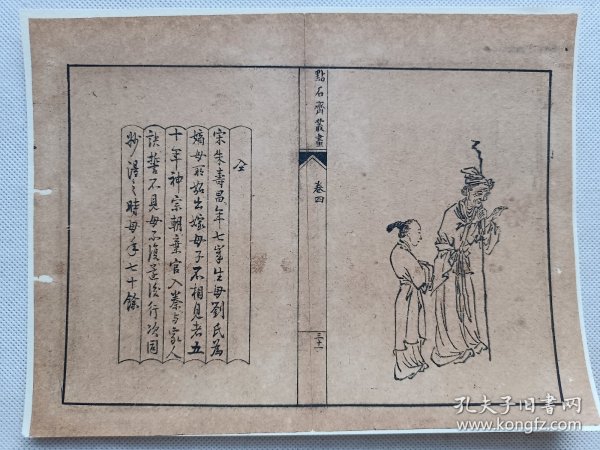 點石齋叢畫
卷四
三十一
仝
宋朱壽昌年七嵗生母劉氏為
嫡母所妬出嫁母子不相見者五
十年神宗朝棄官入秦与家人
訣誓不見母不復還後行次同
州得之時母年七十餘
孔夫子旧书网
www.kongfz.com